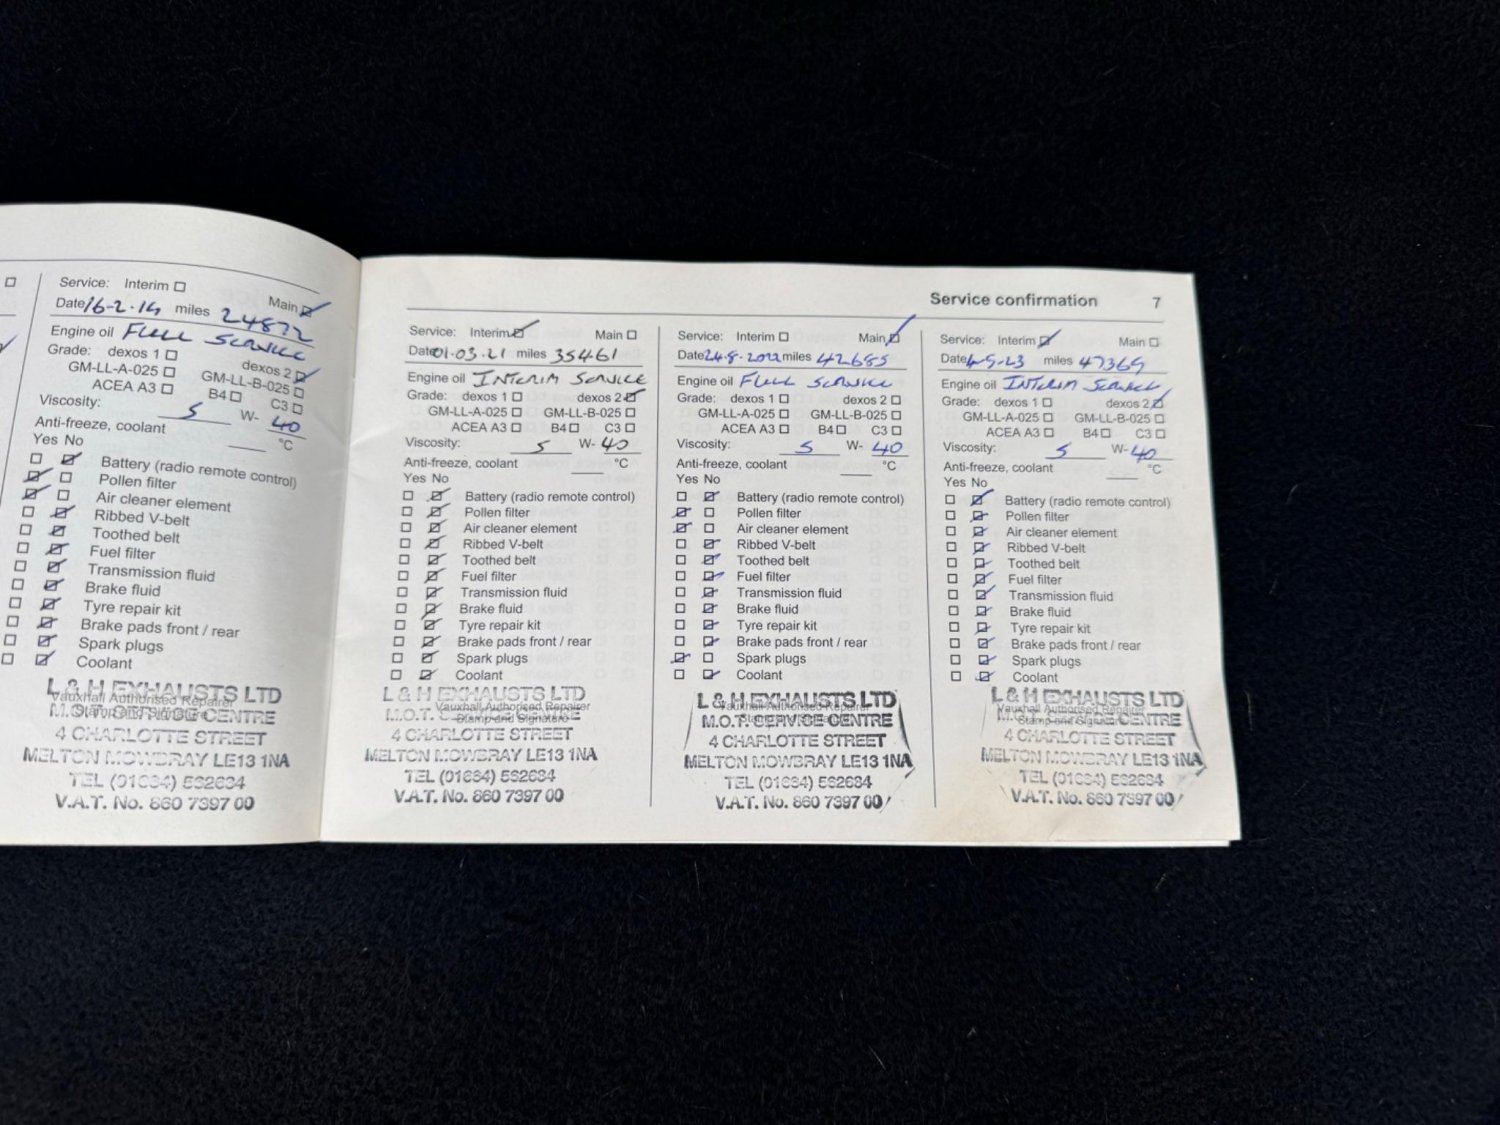 Service: Interim
Main
Date 16-2-14 miles 24872
Engine oil FULL SERVICE
Grade: dexos 1
dexos 2
GM-LL-A-025
GM-LL-B-025
ACEA A3
B4 C3
Viscosity: 5 W- 40
Anti-freeze, coolant °C
Yes No
Battery (radio remote control)
Pollen filter
Air cleaner element
Ribbed V-belt
Toothed belt
Fuel filter
Transmission fluid
Brake fluid
Tyre repair kit
Brake pads front / rear
Spark plugs
Coolant
L & H EXHAUSTS LTD
Vauxhall Authorised Repairer
M.O.T. SERVICE CENTRE
4 CHARLOTTE STREET
MELTON MOWBRAY LE13 1NA
TEL (01664) 562634
V.A.T. No. 860 7397 00
Service confirmation 7
Service: Interim Main
Date 01.03.21 miles 35461
Engine oil INTERIM SERVICE
Grade: dexos 1 dexos 2
GM-LL-A-025 GM-LL-B-025
ACEA A3 B4 C3
Viscosity: 5 W- 40
Anti-freeze, coolant °C
Yes No
Battery (radio remote control)
Pollen filter
Air cleaner element
Ribbed V-belt
Toothed belt
Fuel filter
Transmission fluid
Brake fluid
Tyre repair kit
Brake pads front / rear
Spark plugs
Coolant
L & H EXHAUSTS LTD
Vauxhall Authorised Repairer
M.O.T. SERVICE CENTRE
Stamp and Signature
4 CHARLOTTE STREET
MELTON MOWBRAY LE13 1NA
TEL (01664) 562634
V.A.T. No. 860 7397 00
Service: Interim Main
Date 24.8.2022 miles 42685
Engine oil FULL SERVICE
Grade: dexos 1 dexos 2
GM-LL-A-025 GM-LL-B-025
ACEA A3 B4 C3
Viscosity: 5 W- 40
Anti-freeze, coolant °C
Yes No
Battery (radio remote control)
Pollen filter
Air cleaner element
Ribbed V-belt
Toothed belt
Fuel filter
Transmission fluid
Brake fluid
Tyre repair kit
Brake pads front / rear
Spark plugs
Coolant
L & H EXHAUSTS LTD
Vauxhall Authorised Repairer
M.O.T. SERVICE CENTRE
4 CHARLOTTE STREET
MELTON MOWBRAY LE13 1NA
TEL (01664) 562634
V.A.T. No. 860 7397 00
Service: Interim Main
Date 4-9-23 miles 47369
Engine oil INTERIM SERVICE
Grade: dexos 1 dexos 2
GM-LL-A-025 GM-LL-B-025
ACEA A3 B4 C3
Viscosity: 5 W- 40
Anti-freeze, coolant °C
Yes No
Battery (radio remote control)
Pollen filter
Air cleaner element
Ribbed V-belt
Toothed belt
Fuel filter
Transmission fluid
Brake fluid
Tyre repair kit
Brake pads front / rear
Spark plugs
Coolant
L & H EXHAUSTS LTD
Vauxhall Authorised Repairer
M.O.T. SERVICE CENTRE
Stamp and Signature
4 CHARLOTTE STREET
MELTON MOWBRAY LE13 1NA
TEL (01664) 562634
V.A.T. No. 860 7397 00